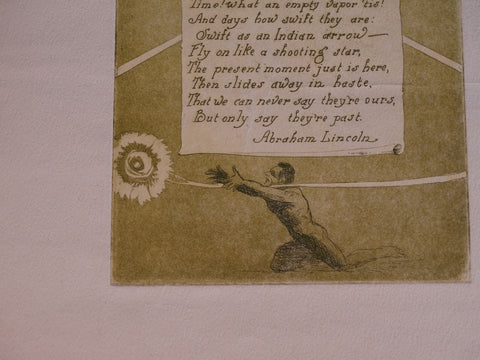 Time! what an empty vapor 'tis!
And days how swift they are:
Swift as an Indian arrow—
Fly on like a shooting star,
The present moment just is here,
Then slides away in haste,
That we can never say they're ours,
But only say they're past.
Abraham Lincoln